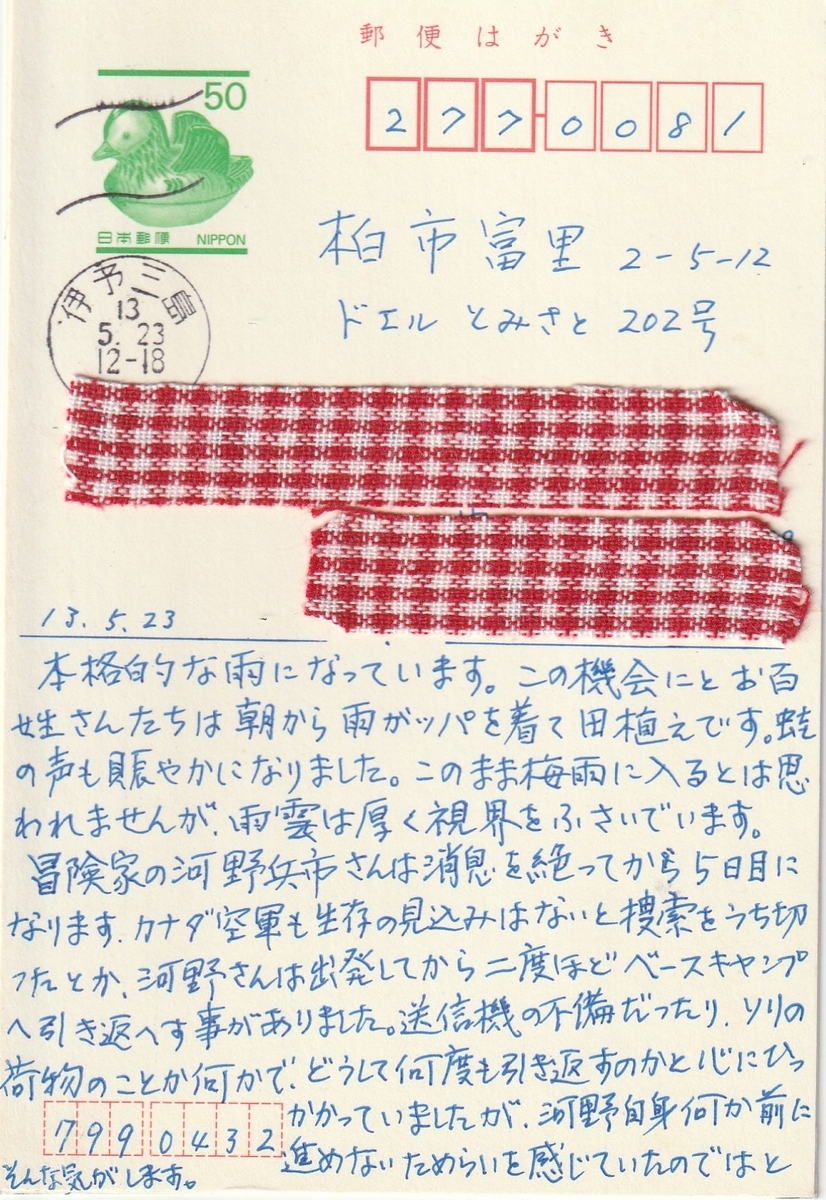 郵便はがき
50
日本郵便 NIPPON
277-0081
柏市富里 2-5-12
ドエル とみさと 202号
伊予三島
13
5.23
12-18
13.5.23
本格的な雨になっています。この機会にとお百
姓さんたちは朝から雨ガッパを着て田植えです。蛙
の声も賑やかになりました。このまま梅雨に入るとは思
われませんが、雨雲は厚く視界をふさいでいます。
冒険家の河野兵市さんは消息を絶ってから5日目に
なります、カナダ空軍も生存の見込みはないと捜索をうち切
ったとか、河野さんは出発してから二度ほどベースキャンプ
へ引き返へす事がありました。送信機の不備だったり、ソリの
荷物のことか何かで、どうして何度も引き返すのかと心にひっ
かかっていましたが、河野自身何か前に
進めないためらいを感じていたのではと
そんな気がします。
7990432